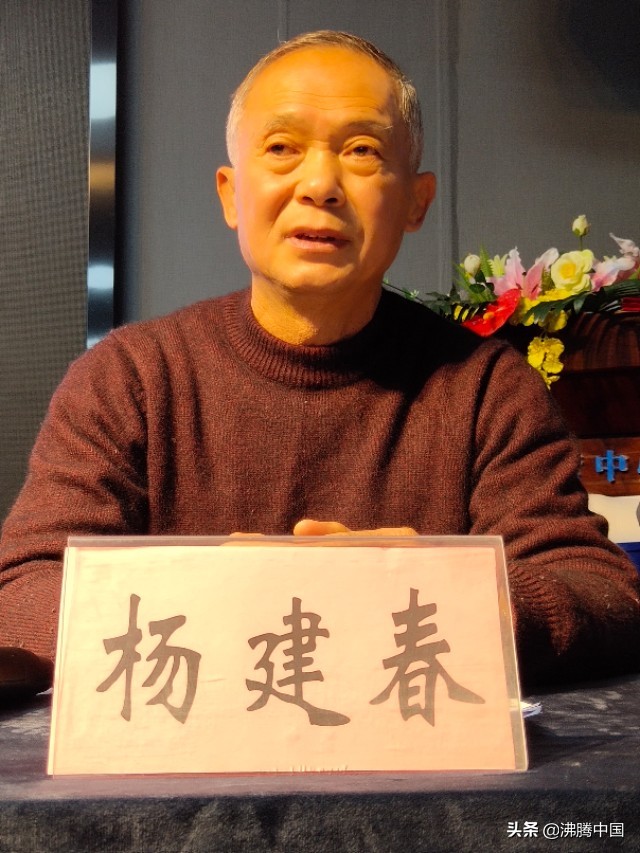 中
杨建春
头条 @沸腾中国